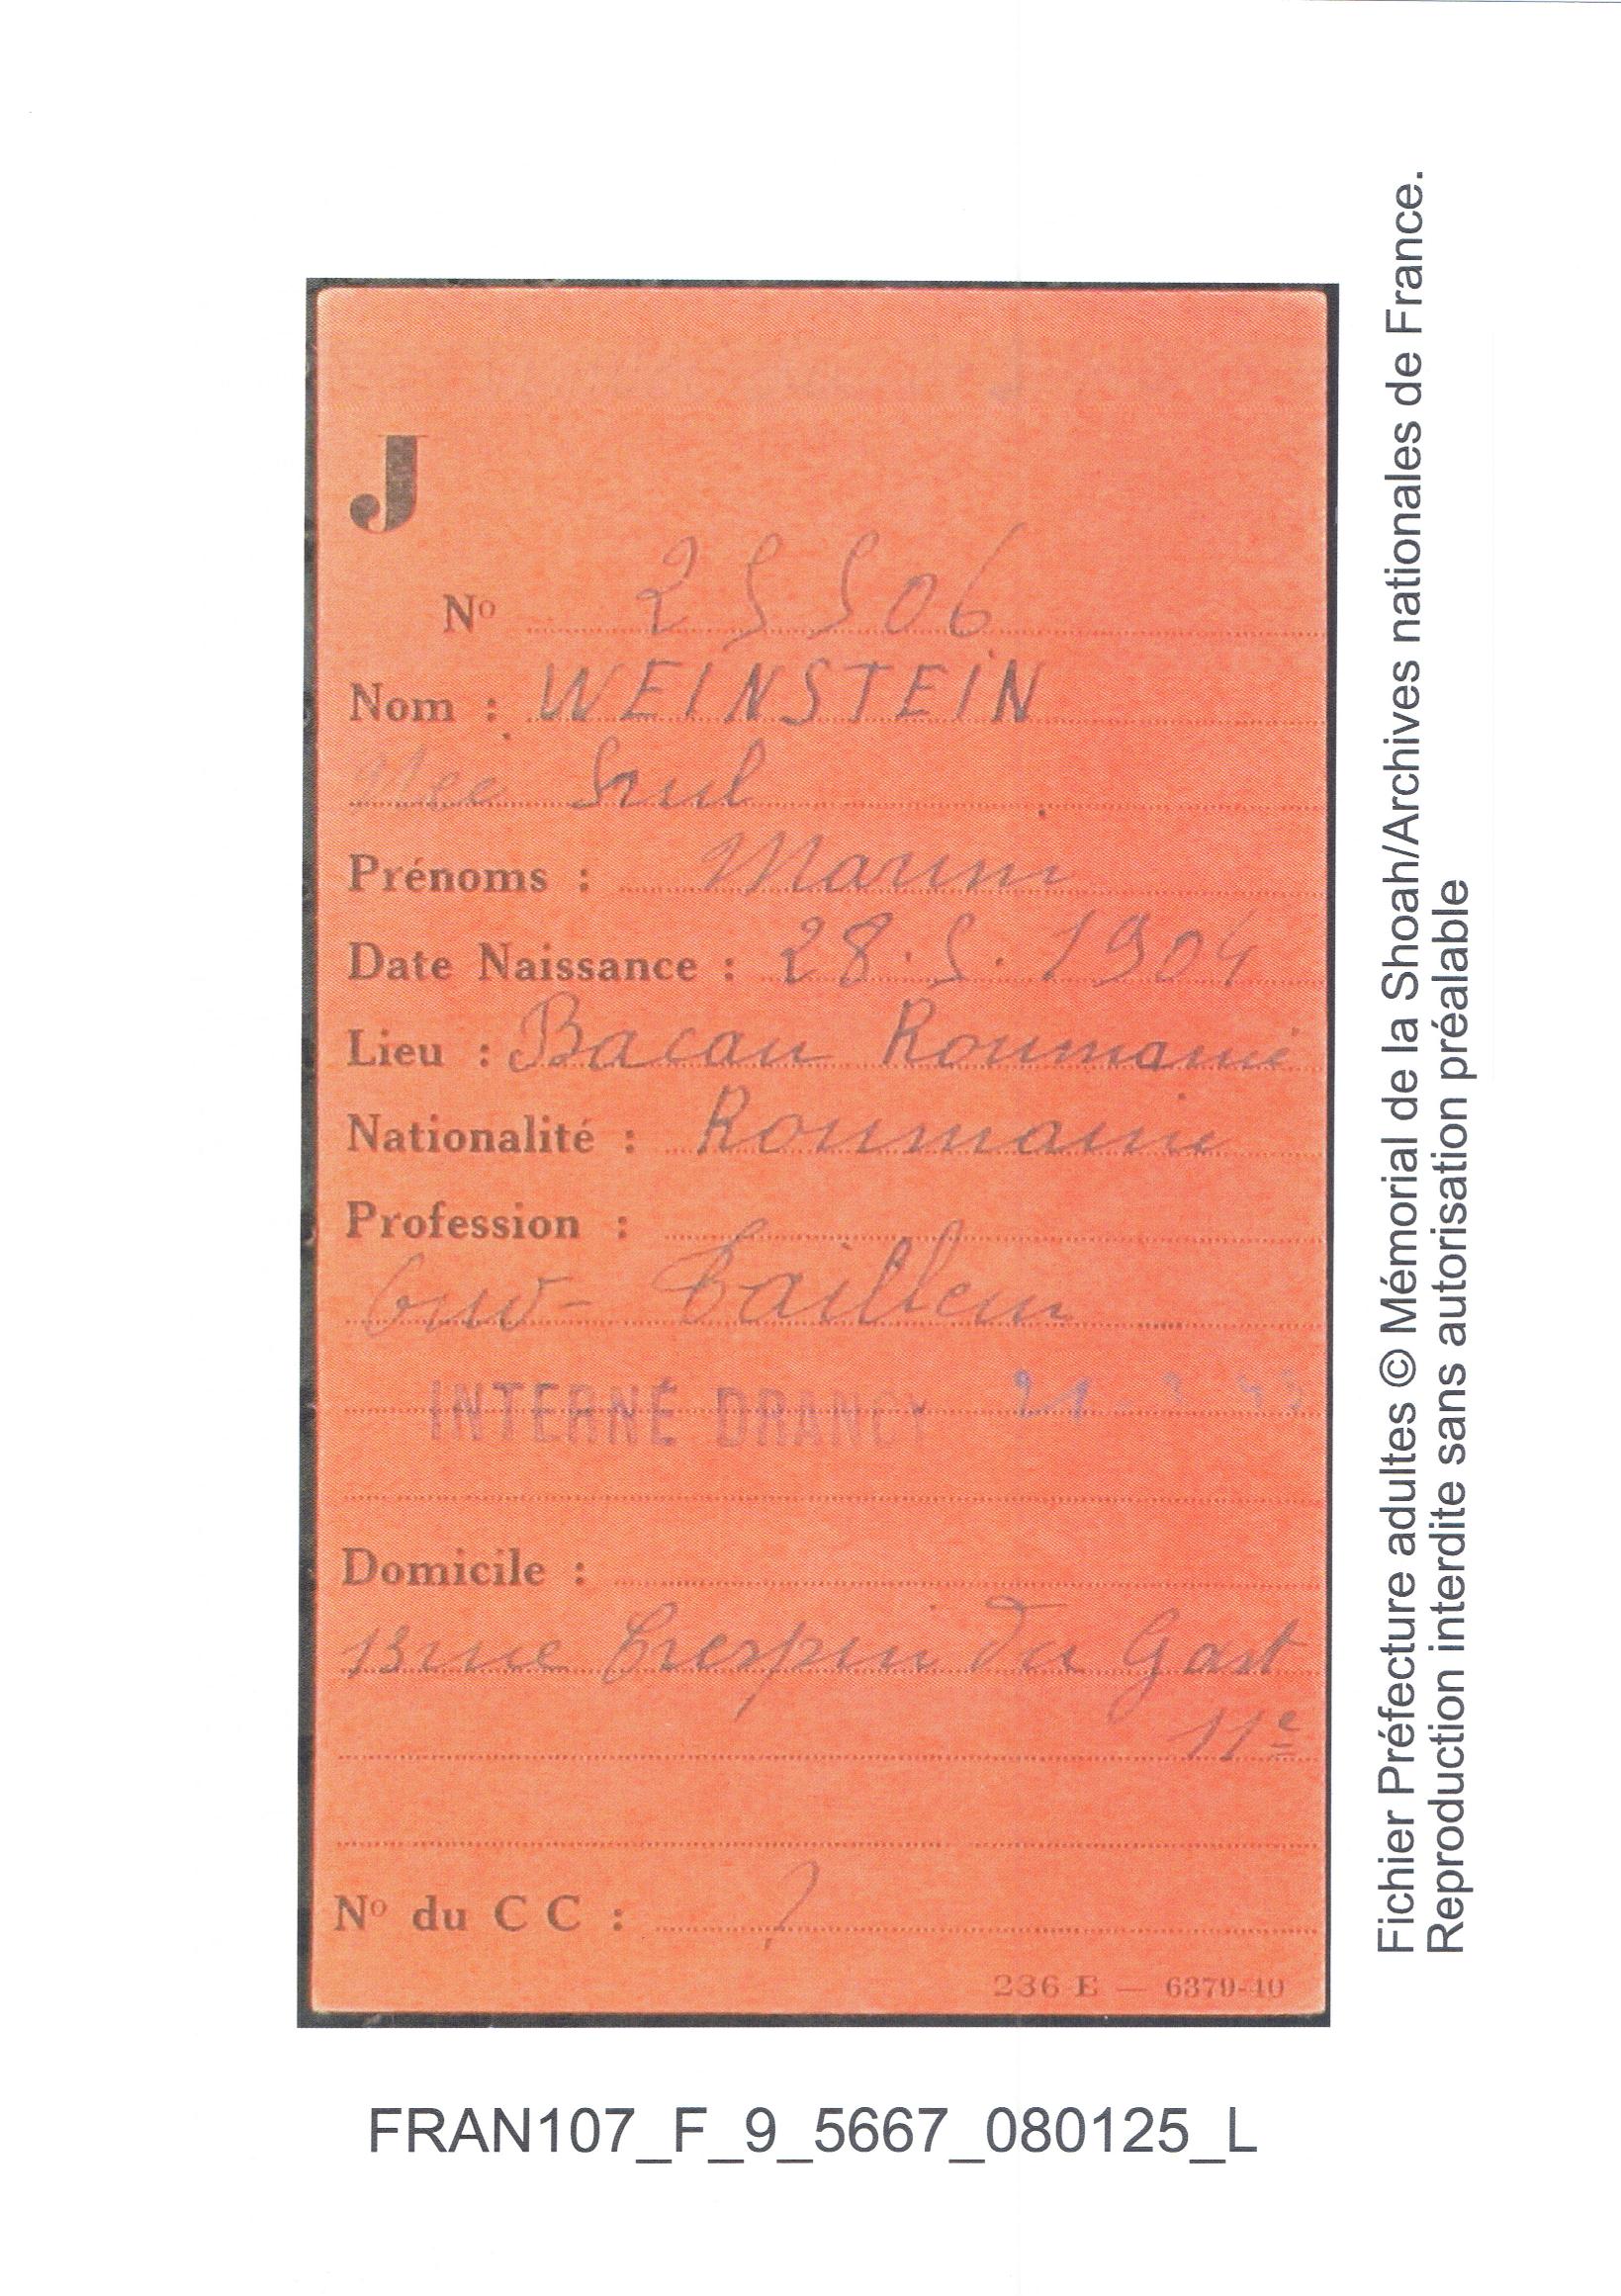 J
Nº 25506
Nom : WEINSTEIN
Née Srul
Prénoms : Marini
Date Naissance : 28.5.1904
Lieu : Bacau Roumanie
Nationalité : Roumaine
Profession :
Ouv- Tailleur
INTERNÉ DRANCY 21
Domicile :
13 rue Crespin du Gast
11e
Nº du C C : ?
236 E — 6379-40
Fichier Préfecture adultes © Mémorial de la Shoah/Archives nationales de France.
Reproduction interdite sans autorisation préalable
FRAN107_F_9_5667_080125_L